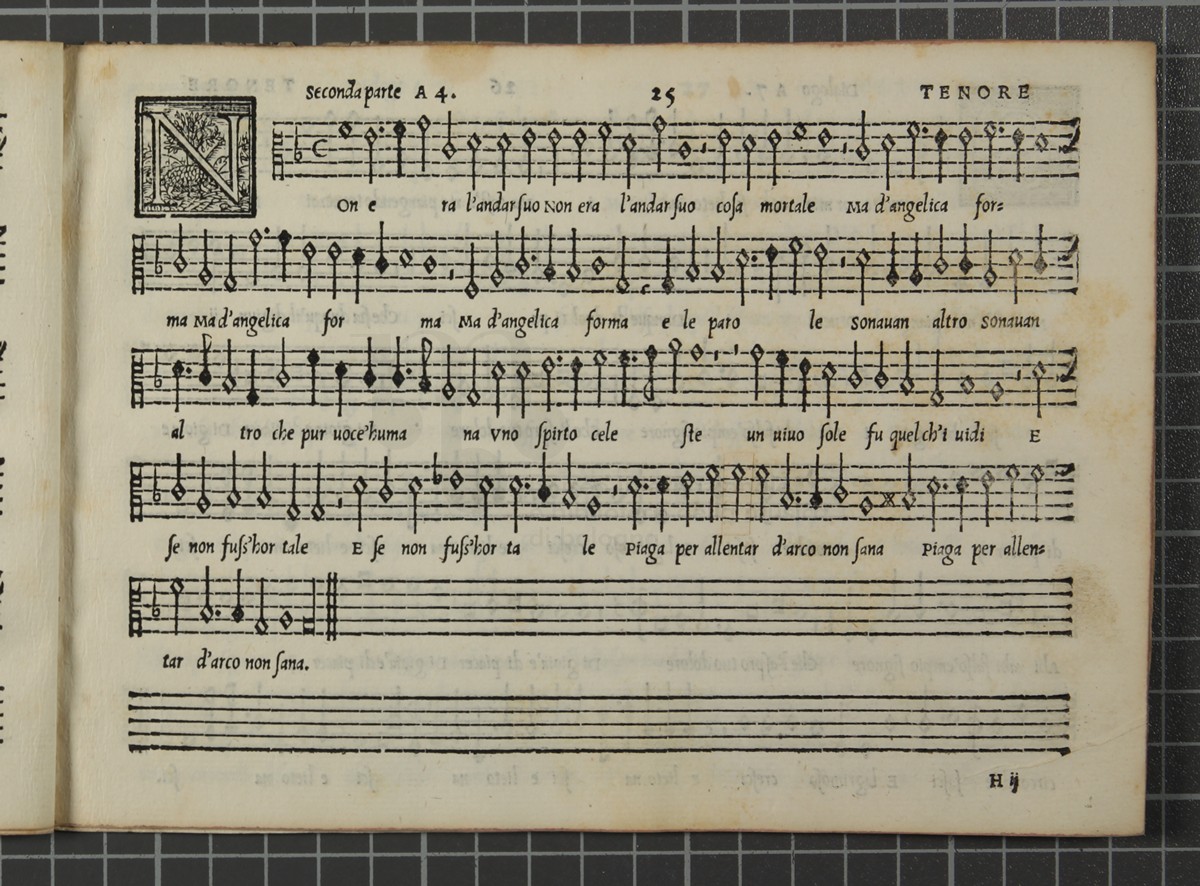 Seconda parte A 4. 25 TENORE
NOn e ra l'andar suo Non era l'andar suo cosa mortale Ma d'angelica for=
ma Ma d'angelica for ma Ma d'angelica forma e le paro le sonauan altro sonauan
al tro che pur uoce'huma na Vno spirto cele ste un uiuo sole fu quel ch'i uidi E
se non fuss'hor tale E se non fuss'hor ta le Piaga per allentar d'arco non sana Piaga per allen=
tar d'arco non sana.
H ij